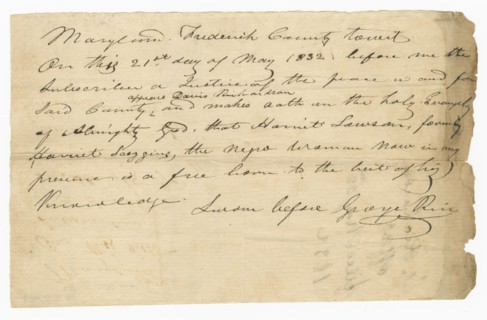 Maryland. Frederick County to wit
On this 21st day of May 1832 before me the
Subscriber a Justice of the peace in and for
appears Davis Richardson
Said County, and makes oath on the holy Evangely
of Almighty God. that Harriet Lawson, formerly
Harriet Scoggins, the Negro Woman Now in my
presence is a free born to the best of his
Knowledge.
Sworn before George Rice